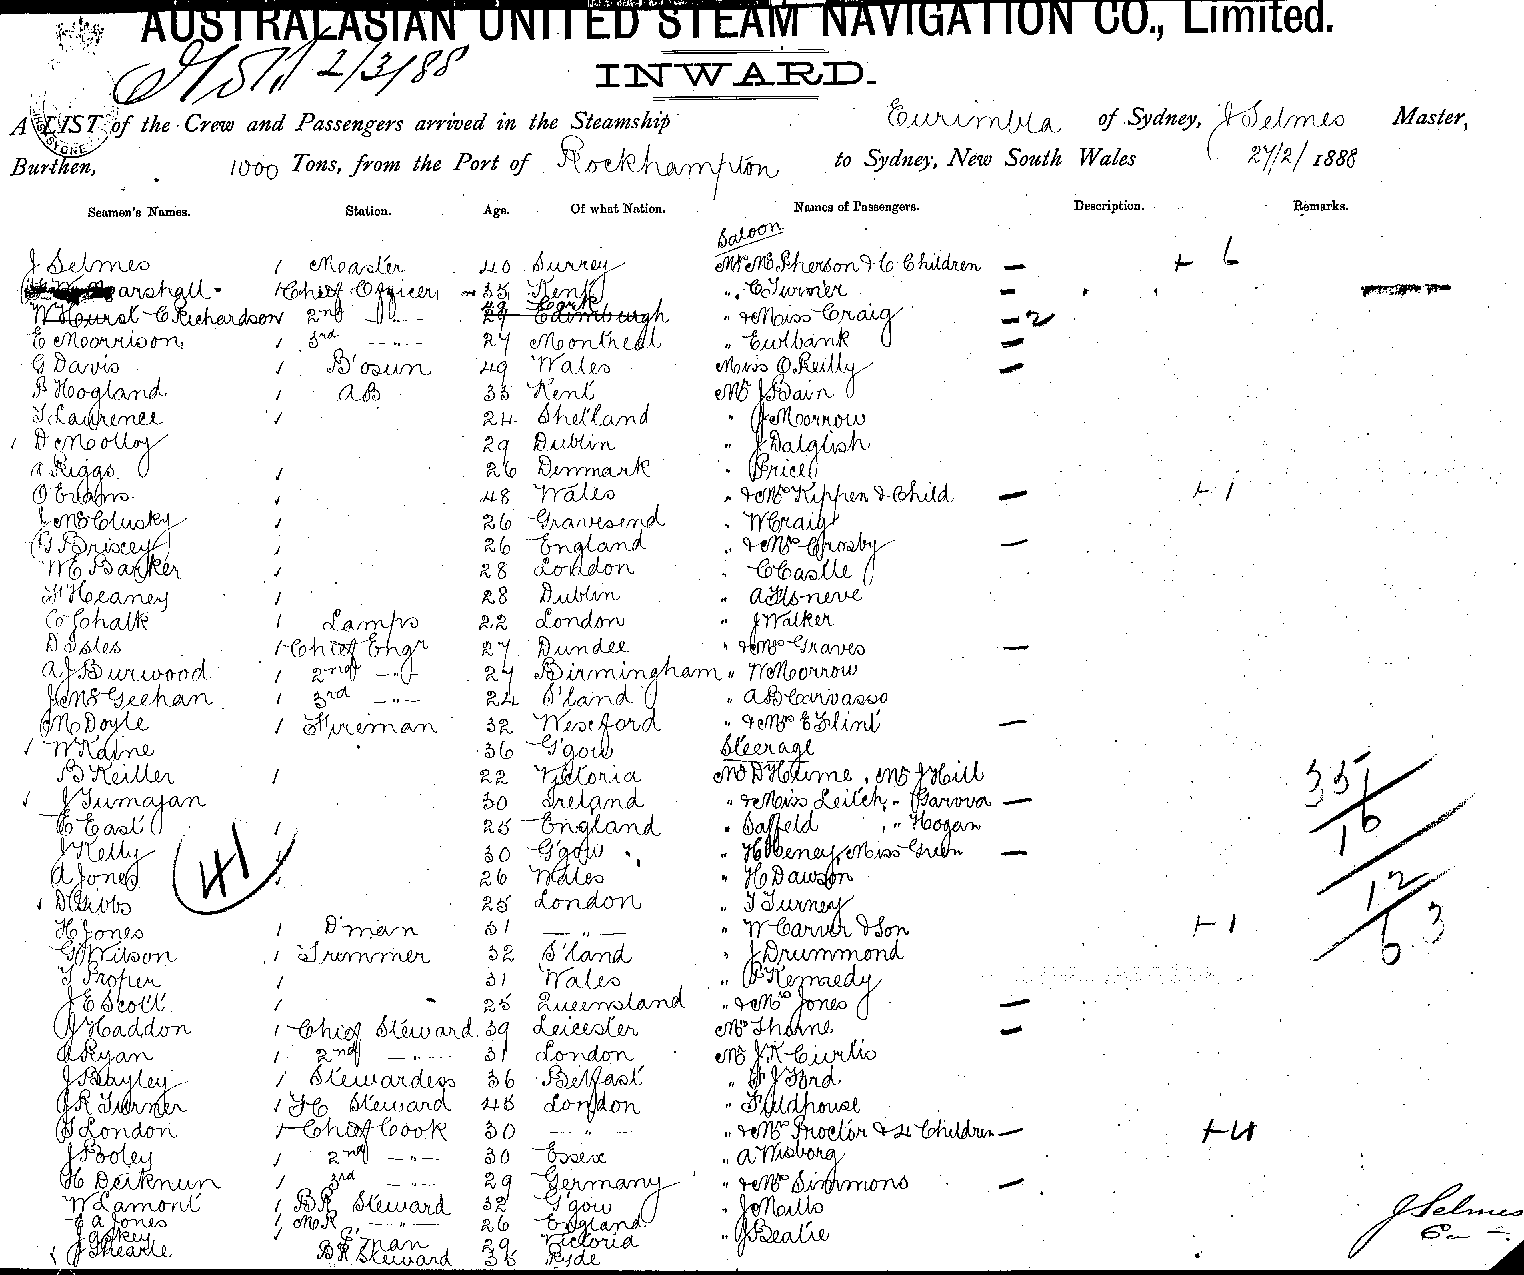 AUSTRALASIAN UNITED STEAM NAVIGATION CO., Limited.
2/3/88
INWARD.
A LIST of the Crew and Passengers arrived in the Steamship Eurimbla of Sydney, J Selmes Master,
Burthen, 1000 Tons, from the Port of Rockhampton to Sydney, New South Wales 27/2/1888
Seamen's Names. Station. Age. Of what Nation. Names of Passengers. Description. Remarks.
Saloon
J Selmes 1 Master 40 Surrey Mrs McPherson & 6 Children — + 6
Marshall 1 Chief Officer 35 Kent " C Turner —
W Hurst C Richardson 2nd —"— 29 Edinburgh Cork " & Miss Craig — 2
E Morrison 1 3rd —"— 27 Montreal " Ewbank —
G Davis 1 B'osun 49 Wales Miss O'Reilly —
P Hoogland 1 AB 35 Kent Mr J Bain
T Laurence 1 24 Shetland " J Morrow
1 D Molloy 29 Dublin " J Dalglish
A Riggs 1 26 Denmark " Price
O Evans 1 48 Wales " & Mrs Kippen & Child — + 1
J McClusky 1 26 Gravesend " W Craig
G Brixey 1 26 England " & Mrs Crosby —
W C Barker 1 28 London " C Castle
H Heaney 1 28 Dublin " A
C Chalk 1 Lamps 22 London " J Walker
D Isles 1 Chief Engr 27 Dundee " & Mrs Graves —
A J Burwood 1 2nd —"— 27 Birmingham " W Morrow
J McGeehan 1 3rd —"— 24 S'land " A B Carvasso
M Doyle 1 Fireman 32 Wexford " & Mrs E Flint —
1 W Kaine 36 G'gow Steerage
B Keiller 1 22 Victoria Mr D Hume, Mr J Hill
1 J 30 Ireland " & Miss Leitch, " Garova — 35
C East 1 25 England " Saffeld, " Hogan 16
J Kelly 30 G'gow " H Weney, Miss Green —
A Jones 1 26 Wales " H Dawson 12
41
1 D Gibbs 25 London " T Turney
H Jones 1 D'man 31 —"— " W Carver & Son + 1 63
G Wilson 1 Trimmer 32 S'land " J Drummond
T Proper 1 31 Wales " P Kennedy
J E Scott 1 25 Queensland " & Mrs Jones —
J Haddon 1 Chief Steward 39 Leicester Mrs Thorne —
A Ryan 1 2nd —"— 31 London Mr J K Curtis
J Bayley 1 Stewardess 36 Belfast " F J Ford
J R Turner 1 F C Steward 45 London " Fieldhouse
T London 1 Chief Cook 30 —"— " & Mrs Proctor & 4 Children — + 4
J Pooley 1 2nd —"— 30 Essex " A Wisborg
H Deiknun 1 3rd —"— 29 Germany " & Mrs Simmons —
W Lamont 1 BR Steward 32 G'gow " J Mills
E A Jones 1 MR —"— 26 England " J Beatie
1 29 Victoria
1 J Shearle BR Steward 35 Ryde
J Selmes